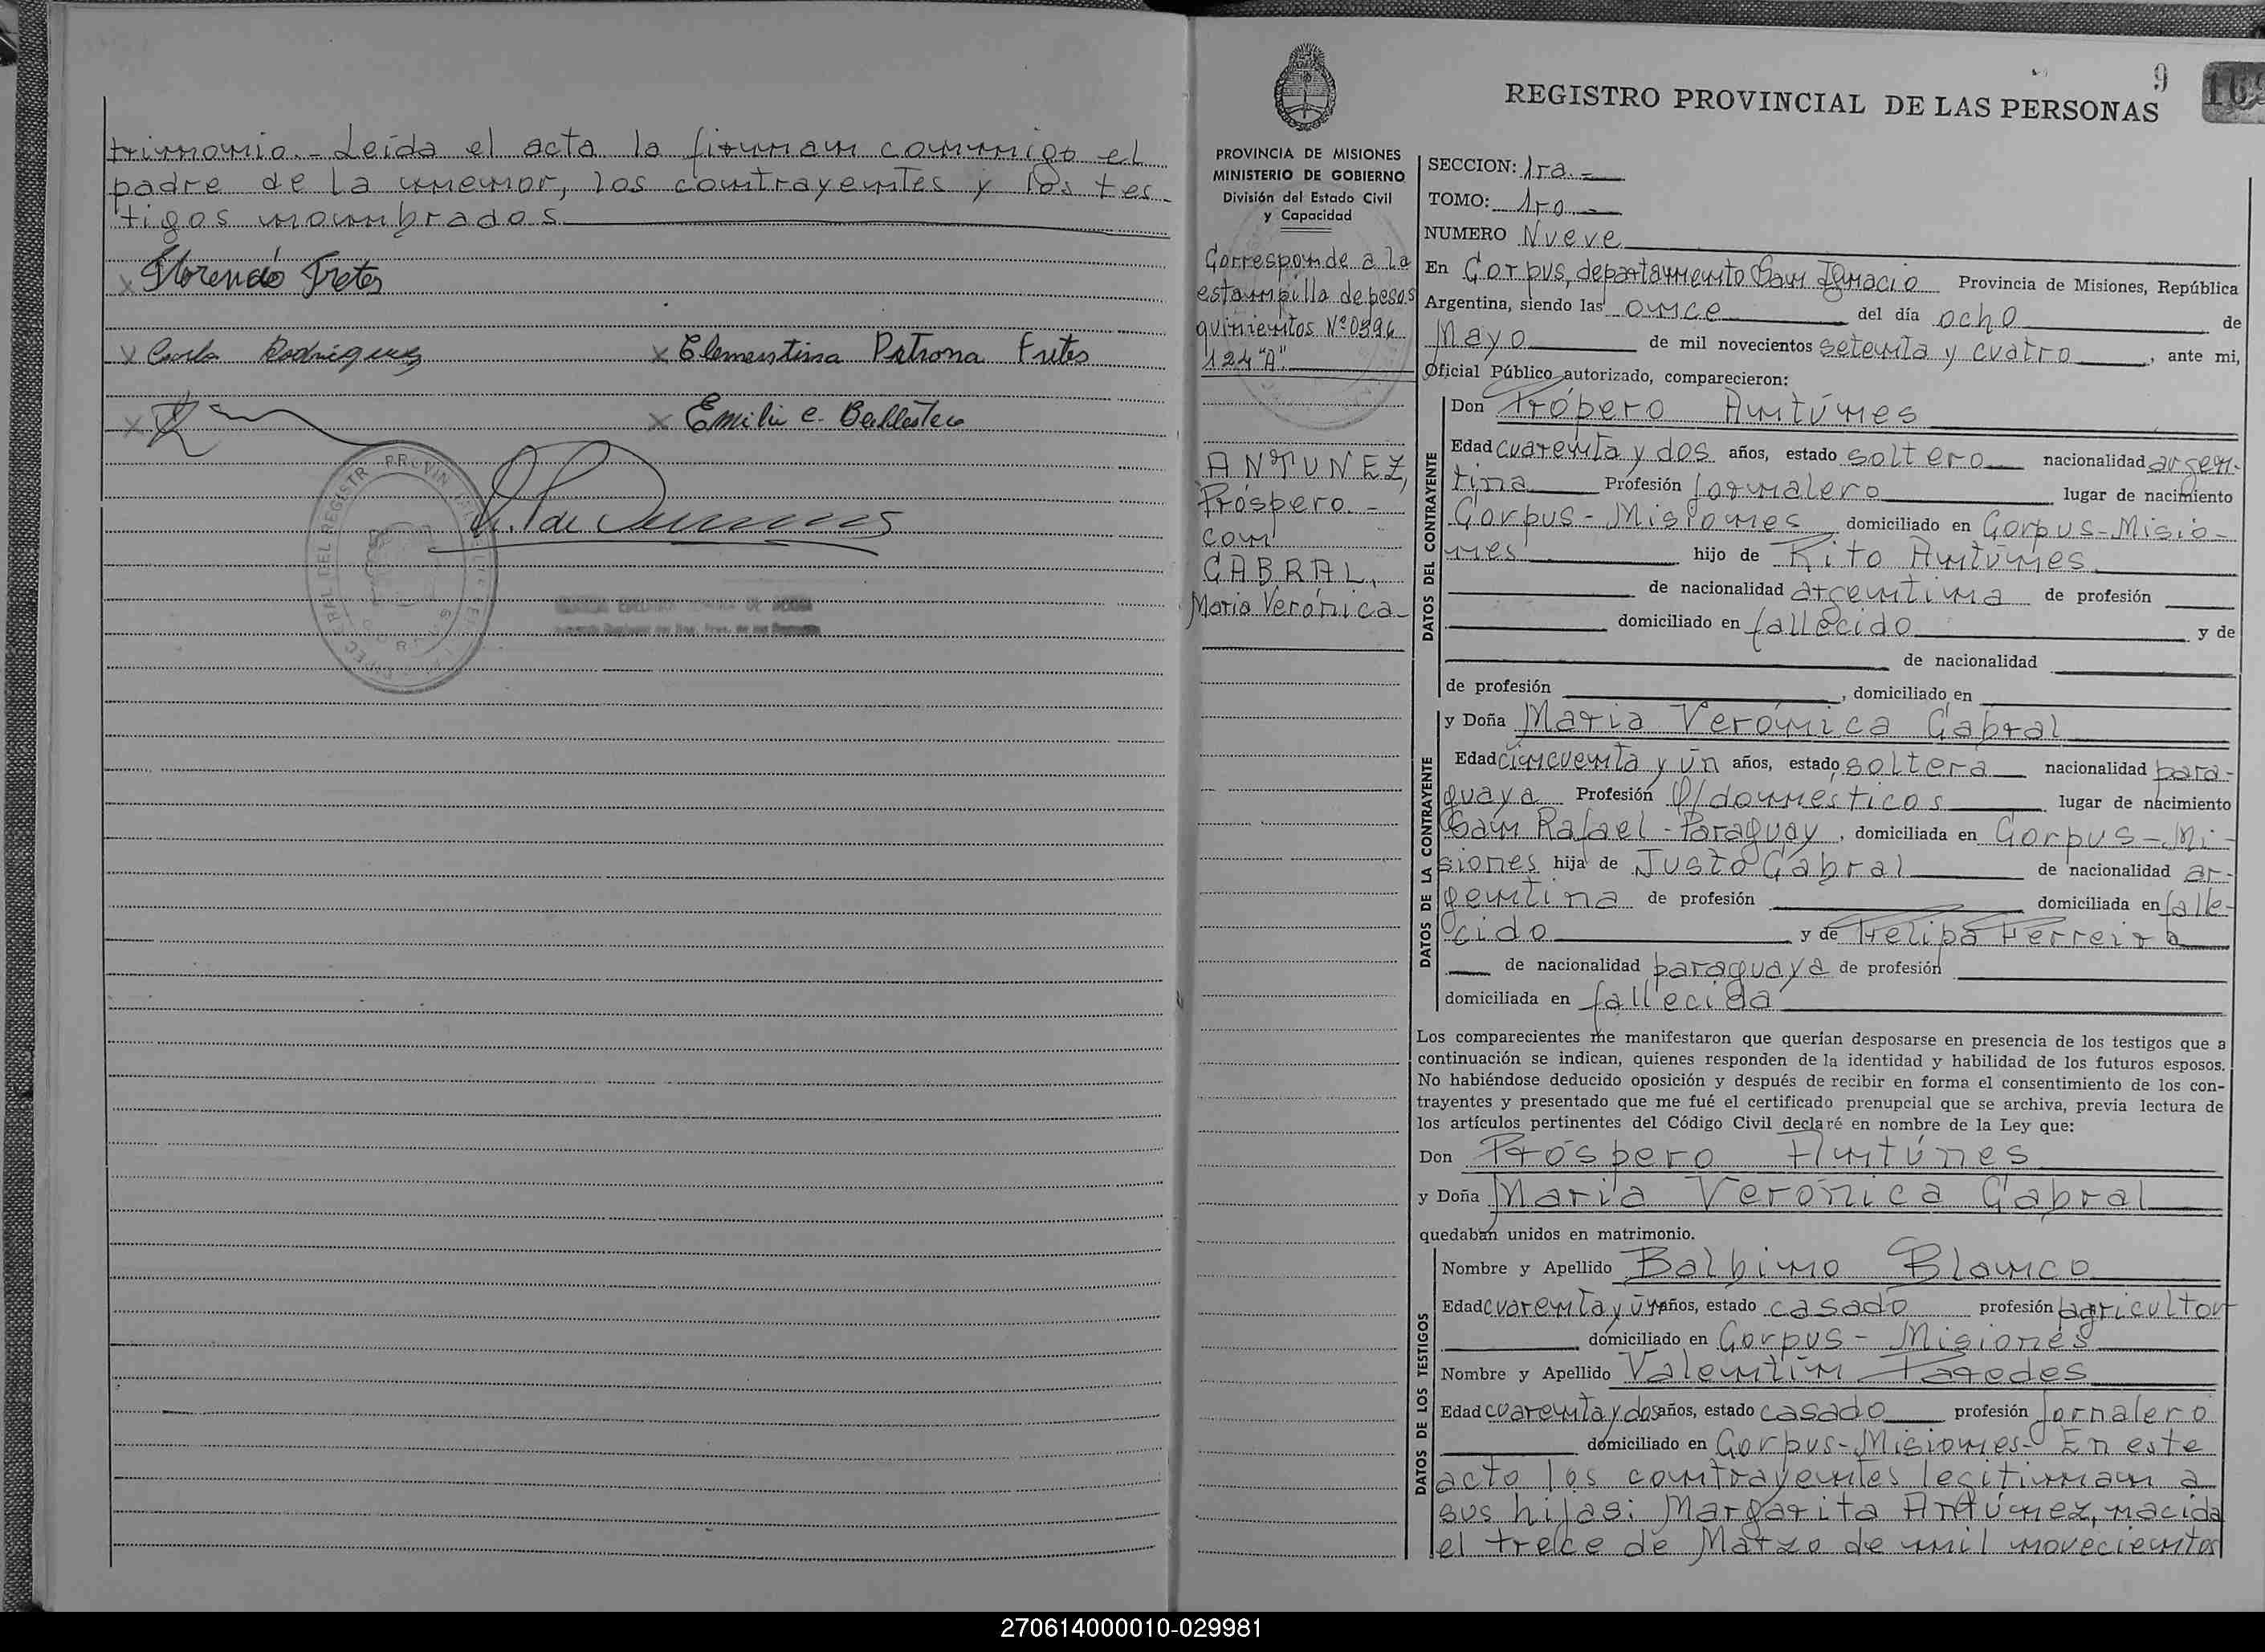 trimonio.- Leída el acta la firman conmigo el
padre de la menor, los contrayentes y los tes
tigos nombrados.
x Florencio Fretes
x Carlo Rodriguez x Clementina Petrona Fretes
x x Emilio e. Ballestero
REGISTRO PROVINCIAL DE LAS PERSONAS
9
PROVINCIA DE MISIONES
MINISTERIO DE GOBIERNO
División del Estado Civil
y Capacidad
Corresponde a la
estampilla de pesos
quinientos Nº 0594
124 "A".
ANTUNEZ,
Próspero.-
con
CABRAL,
Maria Verónica-
SECCION: 1ra.-
TOMO: 1ro.-
NUMERO Nueve
En Corpus, departamento San Ignacio Provincia de Misiones, República
Argentina, siendo las once del día ocho de
Mayo de mil novecientos setenta y cuatro, ante mi,
Oficial Público autorizado, comparecieron:
DATOS DEL CONTRAYENTE
Don Própero Antúnes
Edad cuarenta y dos años, estado soltero nacionalidad argen-
tina Profesión jornalero lugar de nacimiento
Corpus - Misiones domiciliado en Corpus-Misio-
nes hijo de Rito Antúnes
de nacionalidad argentina de profesión
domiciliado en fallecido y de
de nacionalidad
de profesión , domiciliado en
DATOS DE LA CONTRAYENTE
y Doña Maria Verónica Cabral
Edad cincuenta y un años, estado soltera nacionalidad para-
guaya Profesión Q/domésticos lugar de nacimiento
San Rafael - Paraguay, domiciliada en Corpus-Mi-
siones hija de Justo Cabral de nacionalidad ar-
gentina de profesión domiciliada en falle-
cido y de Felipa Ferreira
de nacionalidad paraguaya de profesión
domiciliada en fallecida
Los comparecientes me manifestaron que querían desposarse en presencia de los testigos que a
continuación se indican, quienes responden de la identidad y habilidad de los futuros esposos.
No habiéndose deducido oposición y después de recibir en forma el consentimiento de los con-
trayentes y presentado que me fué el certificado prenupcial que se archiva, previa lectura de
los artículos pertinentes del Código Civil declaré en nombre de la Ley que:
Don Próspero Antúnes
y Doña Maria Verónica Cabral
quedaban unidos en matrimonio.
DATOS DE LOS TESTIGOS
Nombre y Apellido Balbino Blanco
Edad cuarenta y un años, estado casado profesión agricultor
domiciliado en Corpus - Misiones
Nombre y Apellido Valentín Paredes
Edad cuarenta y dos años, estado casado profesión jornalero
domiciliado en Corpus-Misiones- En este
acto los contrayentes legitiman a
sus hijas: Margarita Antúnez, nacida
el trece de Marzo de mil novecientos
270614000010-029981